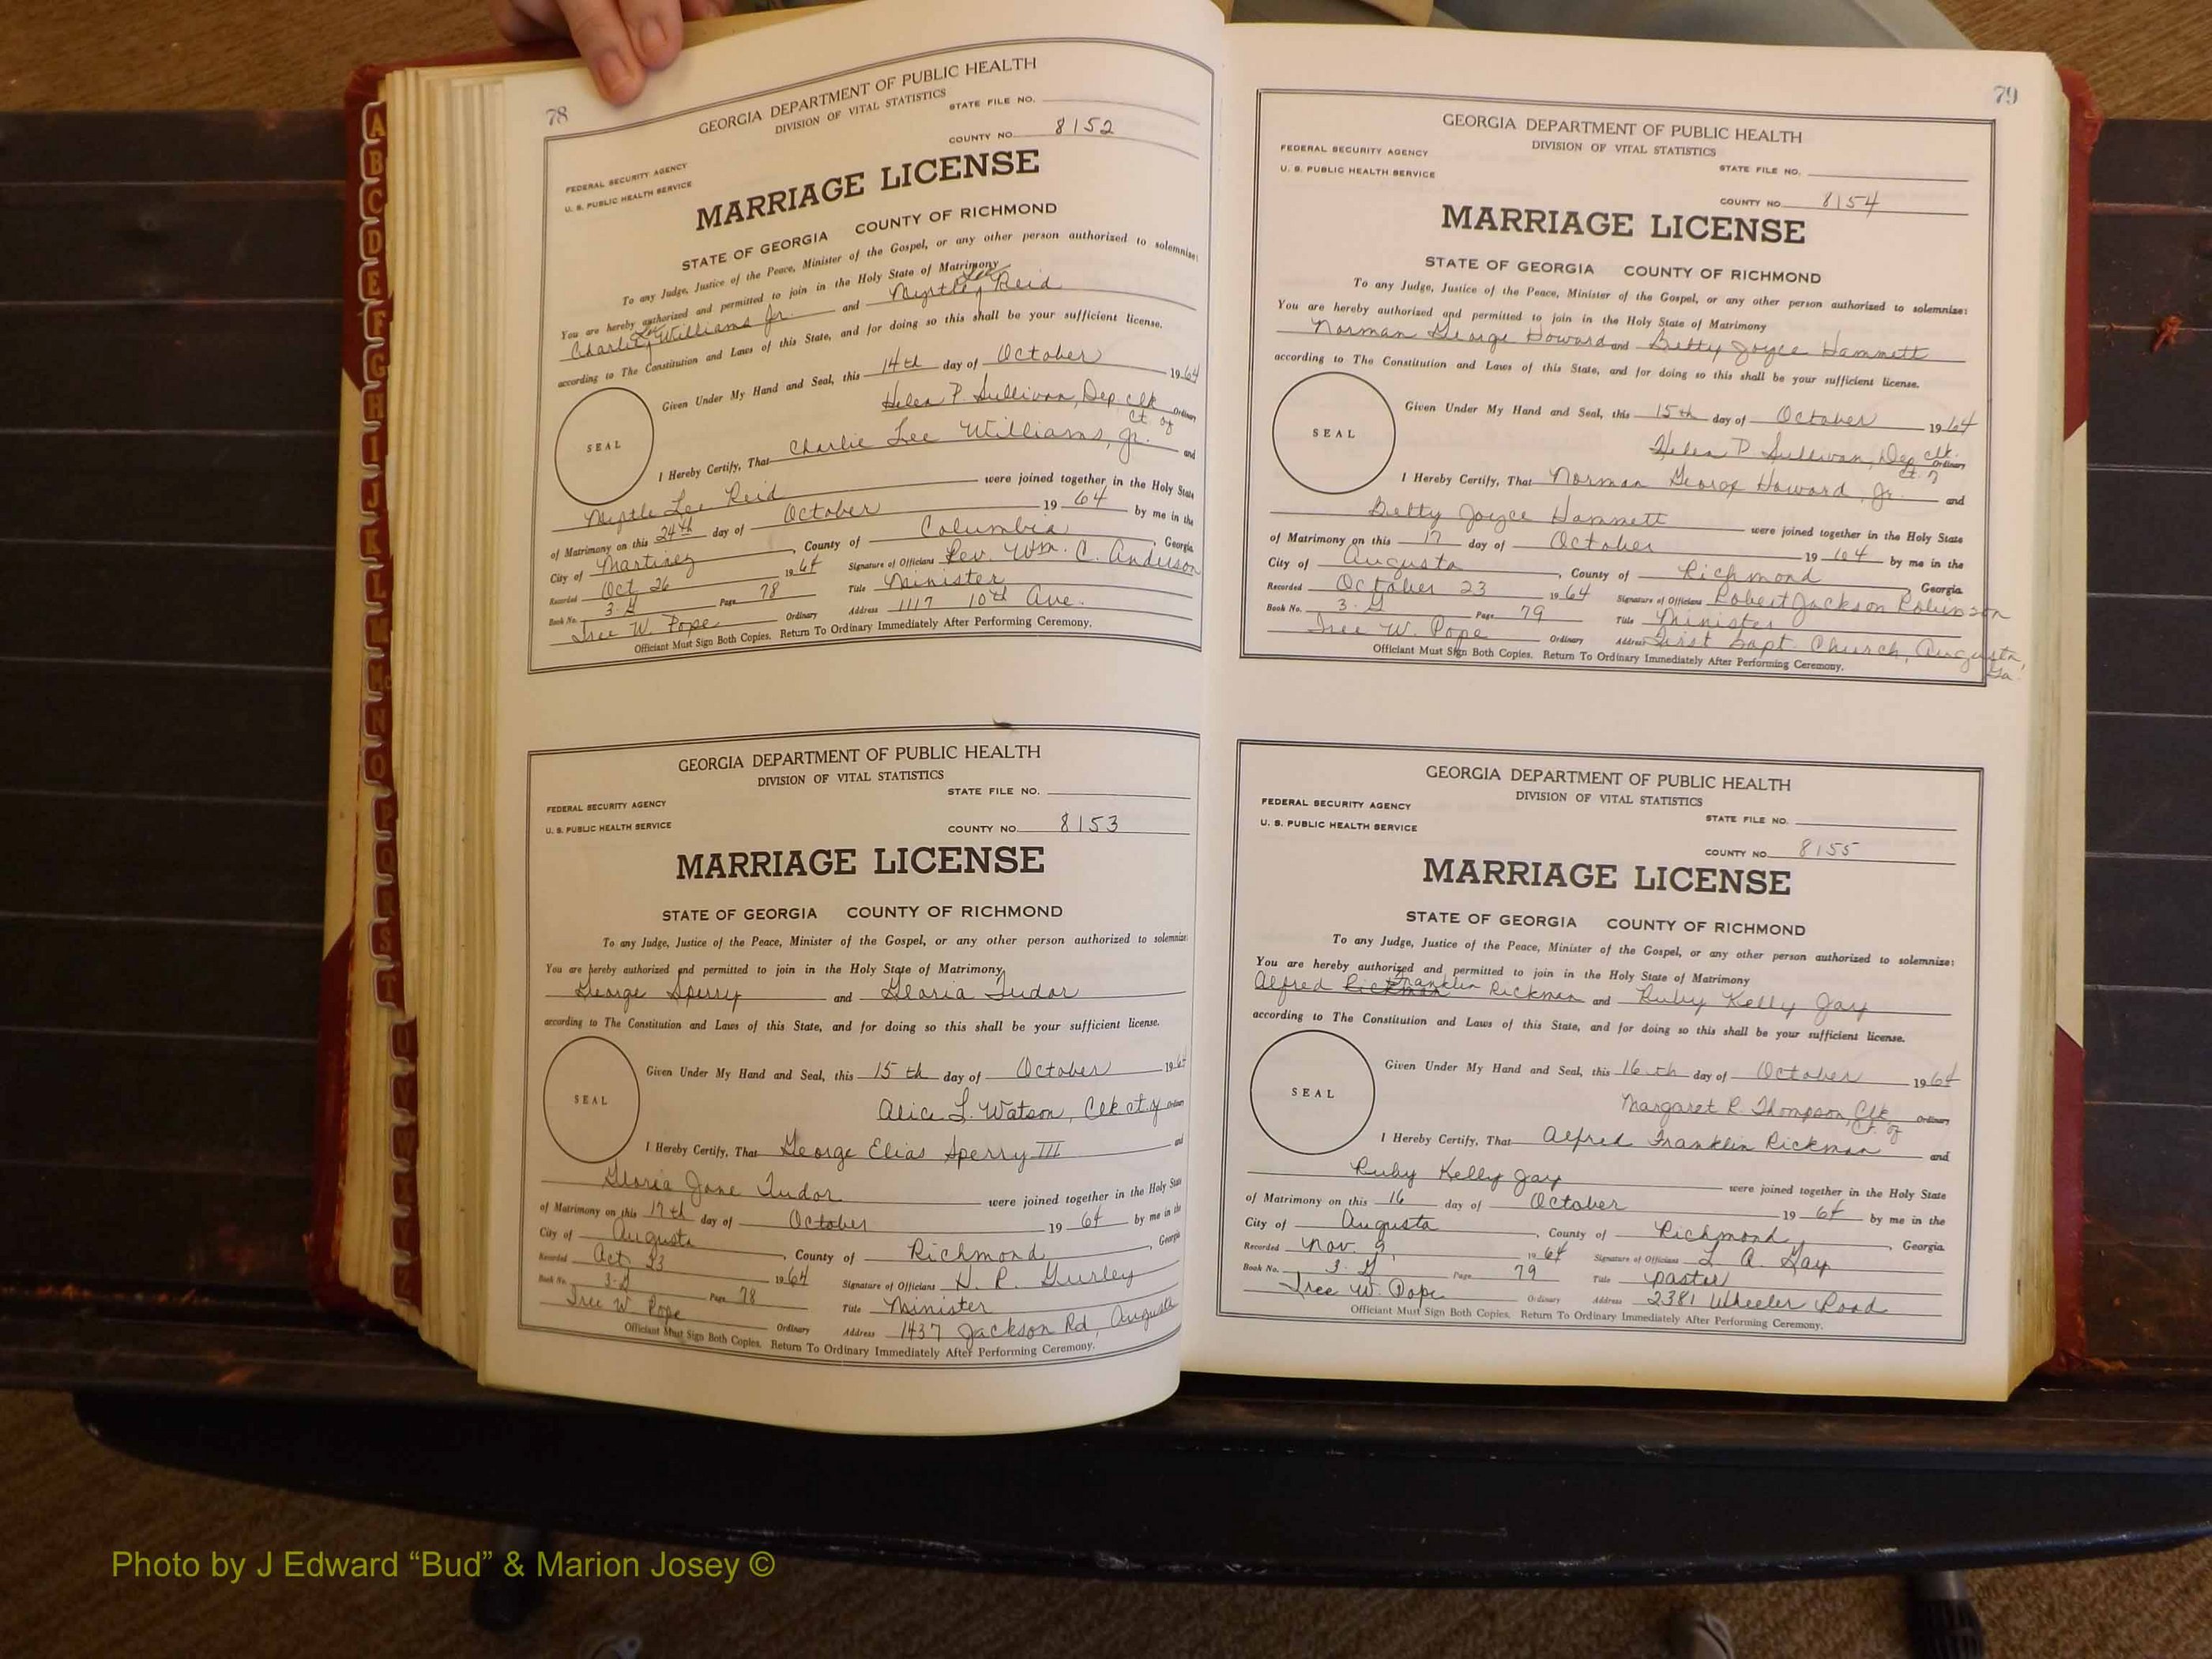 78
GEORGIA DEPARTMENT OF PUBLIC HEALTH
DIVISION OF VITAL STATISTICS
STATE FILE NO.
COUNTY NO. 8152
FEDERAL SECURITY AGENCY
U. S. PUBLIC HEALTH SERVICE
MARRIAGE LICENSE
STATE OF GEORGIA COUNTY OF RICHMOND
To any Judge, Justice of the Peace, Minister of the Gospel, or any other person authorized to solemnize:
You are hereby authorized and permitted to join in the Holy State of Matrimony
Charlie Lee Williams Jr. and Myrtle Lee Reid
according to The Constitution and Laws of this State, and for doing so this shall be your sufficient license.
Given Under My Hand and Seal, this 14th day of October 1964
Helen P. Sullivan, Dep clk Ordinary
ct. of
SEAL
I Hereby Certify, That Charlie Lee Williams, Jr. and
Myrtle Lee Reid were joined together in the Holy State
of Matrimony on this 24th day of October 19 64 by me in the
City of Martinez, County of Columbia, Georgia
Recorded Oct 26 1964 Signature of Officiant Rev. Wm. C. Anderson
Book No. 3-G Page 78 Title Minister
Tree W. Pope Ordinary Address 1117 10th Ave.
Officiant Must Sign Both Copies. Return To Ordinary Immediately After Performing Ceremony.
GEORGIA DEPARTMENT OF PUBLIC HEALTH
DIVISION OF VITAL STATISTICS
STATE FILE NO.
FEDERAL SECURITY AGENCY
U. S. PUBLIC HEALTH SERVICE
COUNTY NO. 8153
MARRIAGE LICENSE
STATE OF GEORGIA COUNTY OF RICHMOND
To any Judge, Justice of the Peace, Minister of the Gospel, or any other person authorized to solemnize:
You are hereby authorized and permitted to join in the Holy State of Matrimony
George Sperry and Gloria Tudor
according to The Constitution and Laws of this State, and for doing so this shall be your sufficient license.
Given Under My Hand and Seal, this 15th day of October 1964
SEAL
Alice L. Watson, Clk ct. of Ordinary
I Hereby Certify, That George Elias Sperry III and
Gloria Jane Tudor were joined together in the Holy State
of Matrimony on this 17th day of October 19 64 by me in the
City of Augusta, County of Richmond, Georgia
Recorded Oct 23 1964 Signature of Officiant H. P. Gurley
Book No. 3-G Page 78 Title Minister
Tree W. Pope Ordinary Address 1437 Jackson Rd, Augusta
Officiant Must Sign Both Copies. Return To Ordinary Immediately After Performing Ceremony.
79
GEORGIA DEPARTMENT OF PUBLIC HEALTH
DIVISION OF VITAL STATISTICS
FEDERAL SECURITY AGENCY
U. S. PUBLIC HEALTH SERVICE
STATE FILE NO.
COUNTY NO. 8154
MARRIAGE LICENSE
STATE OF GEORGIA COUNTY OF RICHMOND
To any Judge, Justice of the Peace, Minister of the Gospel, or any other person authorized to solemnize:
You are hereby authorized and permitted to join in the Holy State of Matrimony
Norman George Howard and Betty Joyce Hammett
according to The Constitution and Laws of this State, and for doing so this shall be your sufficient license.
Given Under My Hand and Seal, this 15th day of October 1964
SEAL
Helen P. Sullivan, Dep clk. Ordinary
ct. of
I Hereby Certify, That Norman George Howard, Jr. and
Betty Joyce Hammett were joined together in the Holy State
of Matrimony on this 17 day of October 19 64 by me in the
City of Augusta, County of Richmond, Georgia
Recorded October 23 1964 Signature of Officiant Robert Jackson Robinson
Book No. 3-G Page 79 Title Minister
Tree W. Pope Ordinary Address First Bapt. Church, Augusta,
Ga.
Officiant Must Sign Both Copies. Return To Ordinary Immediately After Performing Ceremony.
GEORGIA DEPARTMENT OF PUBLIC HEALTH
DIVISION OF VITAL STATISTICS
FEDERAL SECURITY AGENCY
U. S. PUBLIC HEALTH SERVICE
STATE FILE NO.
COUNTY NO. 8155
MARRIAGE LICENSE
STATE OF GEORGIA COUNTY OF RICHMOND
To any Judge, Justice of the Peace, Minister of the Gospel, or any other person authorized to solemnize:
You are hereby authorized and permitted to join in the Holy State of Matrimony
Alfred Rickman Franklin Rickman and Ruby Kelly Jay
according to The Constitution and Laws of this State, and for doing so this shall be your sufficient license.
Given Under My Hand and Seal, this 16th day of October 1964
SEAL
Margaret R. Thompson, Clk Ordinary
ct. of
I Hereby Certify, That Alfred Franklin Rickman and
Ruby Kelly Jay were joined together in the Holy State
of Matrimony on this 16 day of October 19 64 by me in the
City of Augusta, County of Richmond, Georgia.
Recorded Nov. 9, 1964 Signature of Officiant L. A. Gay
Book No. 3-G Page 79 Title pastor
Tree W. Pope Ordinary Address 2381 Wheeler Road
Officiant Must Sign Both Copies. Return To Ordinary Immediately After Performing Ceremony.
A
B
C
D
E
F
G
H
I
J
K
L
M
Mc
N
O
P
Q
R
S
T
Photo by J Edward “Bud” & Marion Josey ©